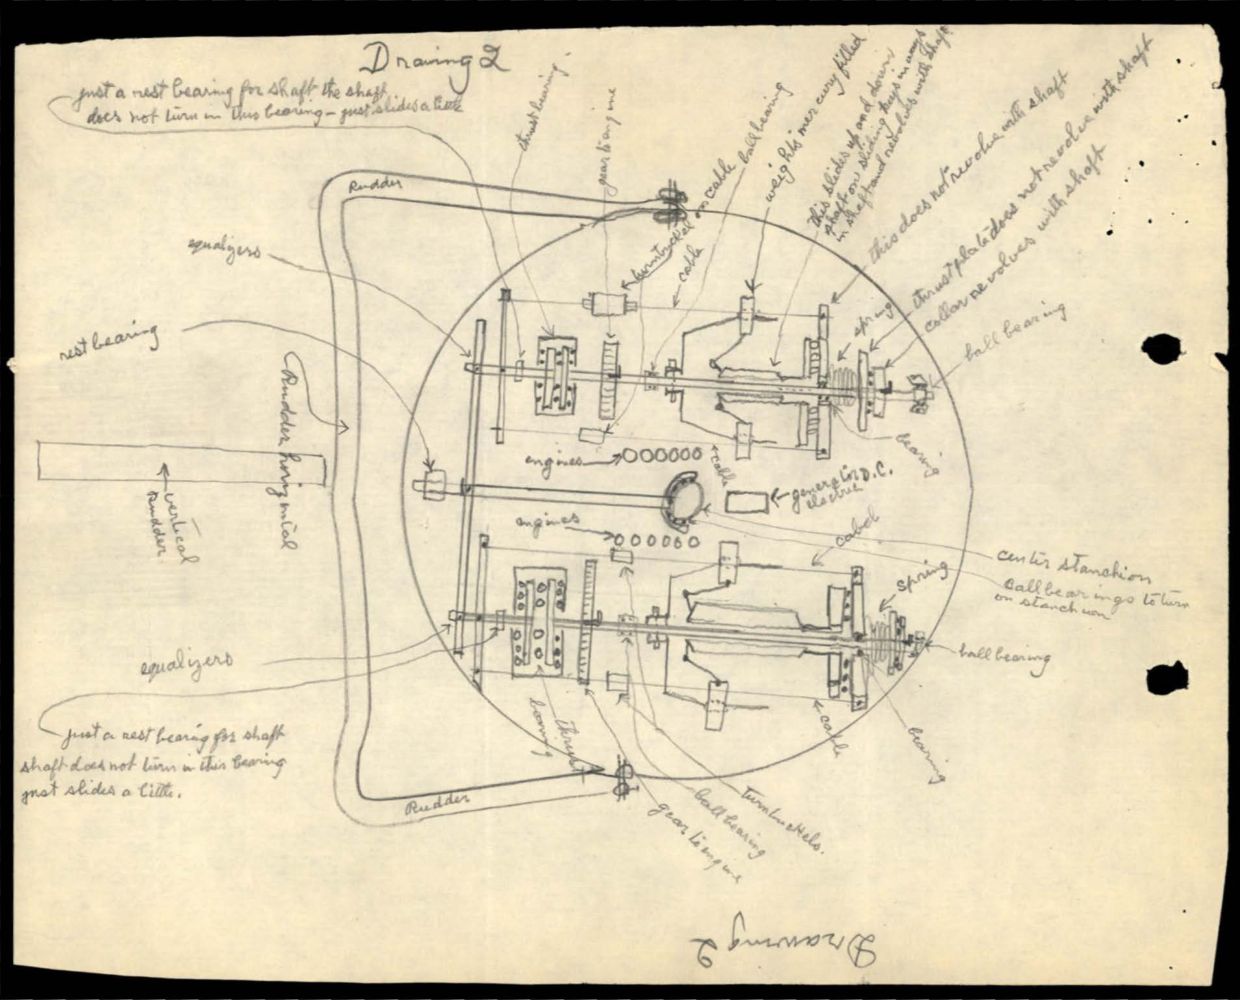 Drawing 2
just a rest bearing for shaft the shaft
does not turn in this bearing - just slides a little
thrust bearing.
gear to engine
turnbuckel on cable
cable
ball bearing
weights mercury filled
this slides up and down
shaft on sliding keys in
in shaft and revolves with shaft
this does not revolve with shaft
thrust plate does not revolve with shaft
collar revolves with shaft
spring
ball bearing
Rudder
equalizers
rest bearing
Rudder horizontal
vertical
Rudder
engines
cable
bearing
generator D.C.
electric
engines
cabel
center stanchion
ball bearings to turn
on stanchion
spring
ball bearing
equalizers
just a rest bearing for shaft
shaft does not turn in this bearing
just slides a little.
Rudder
thrust
bearing
cable
bearing
turnbuckels.
ball bearing
gear to engine
Drawing 2